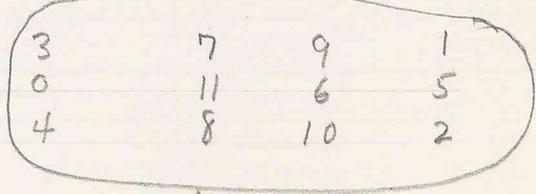 3 7 9 1
0 11 6 5
4 8 10 2